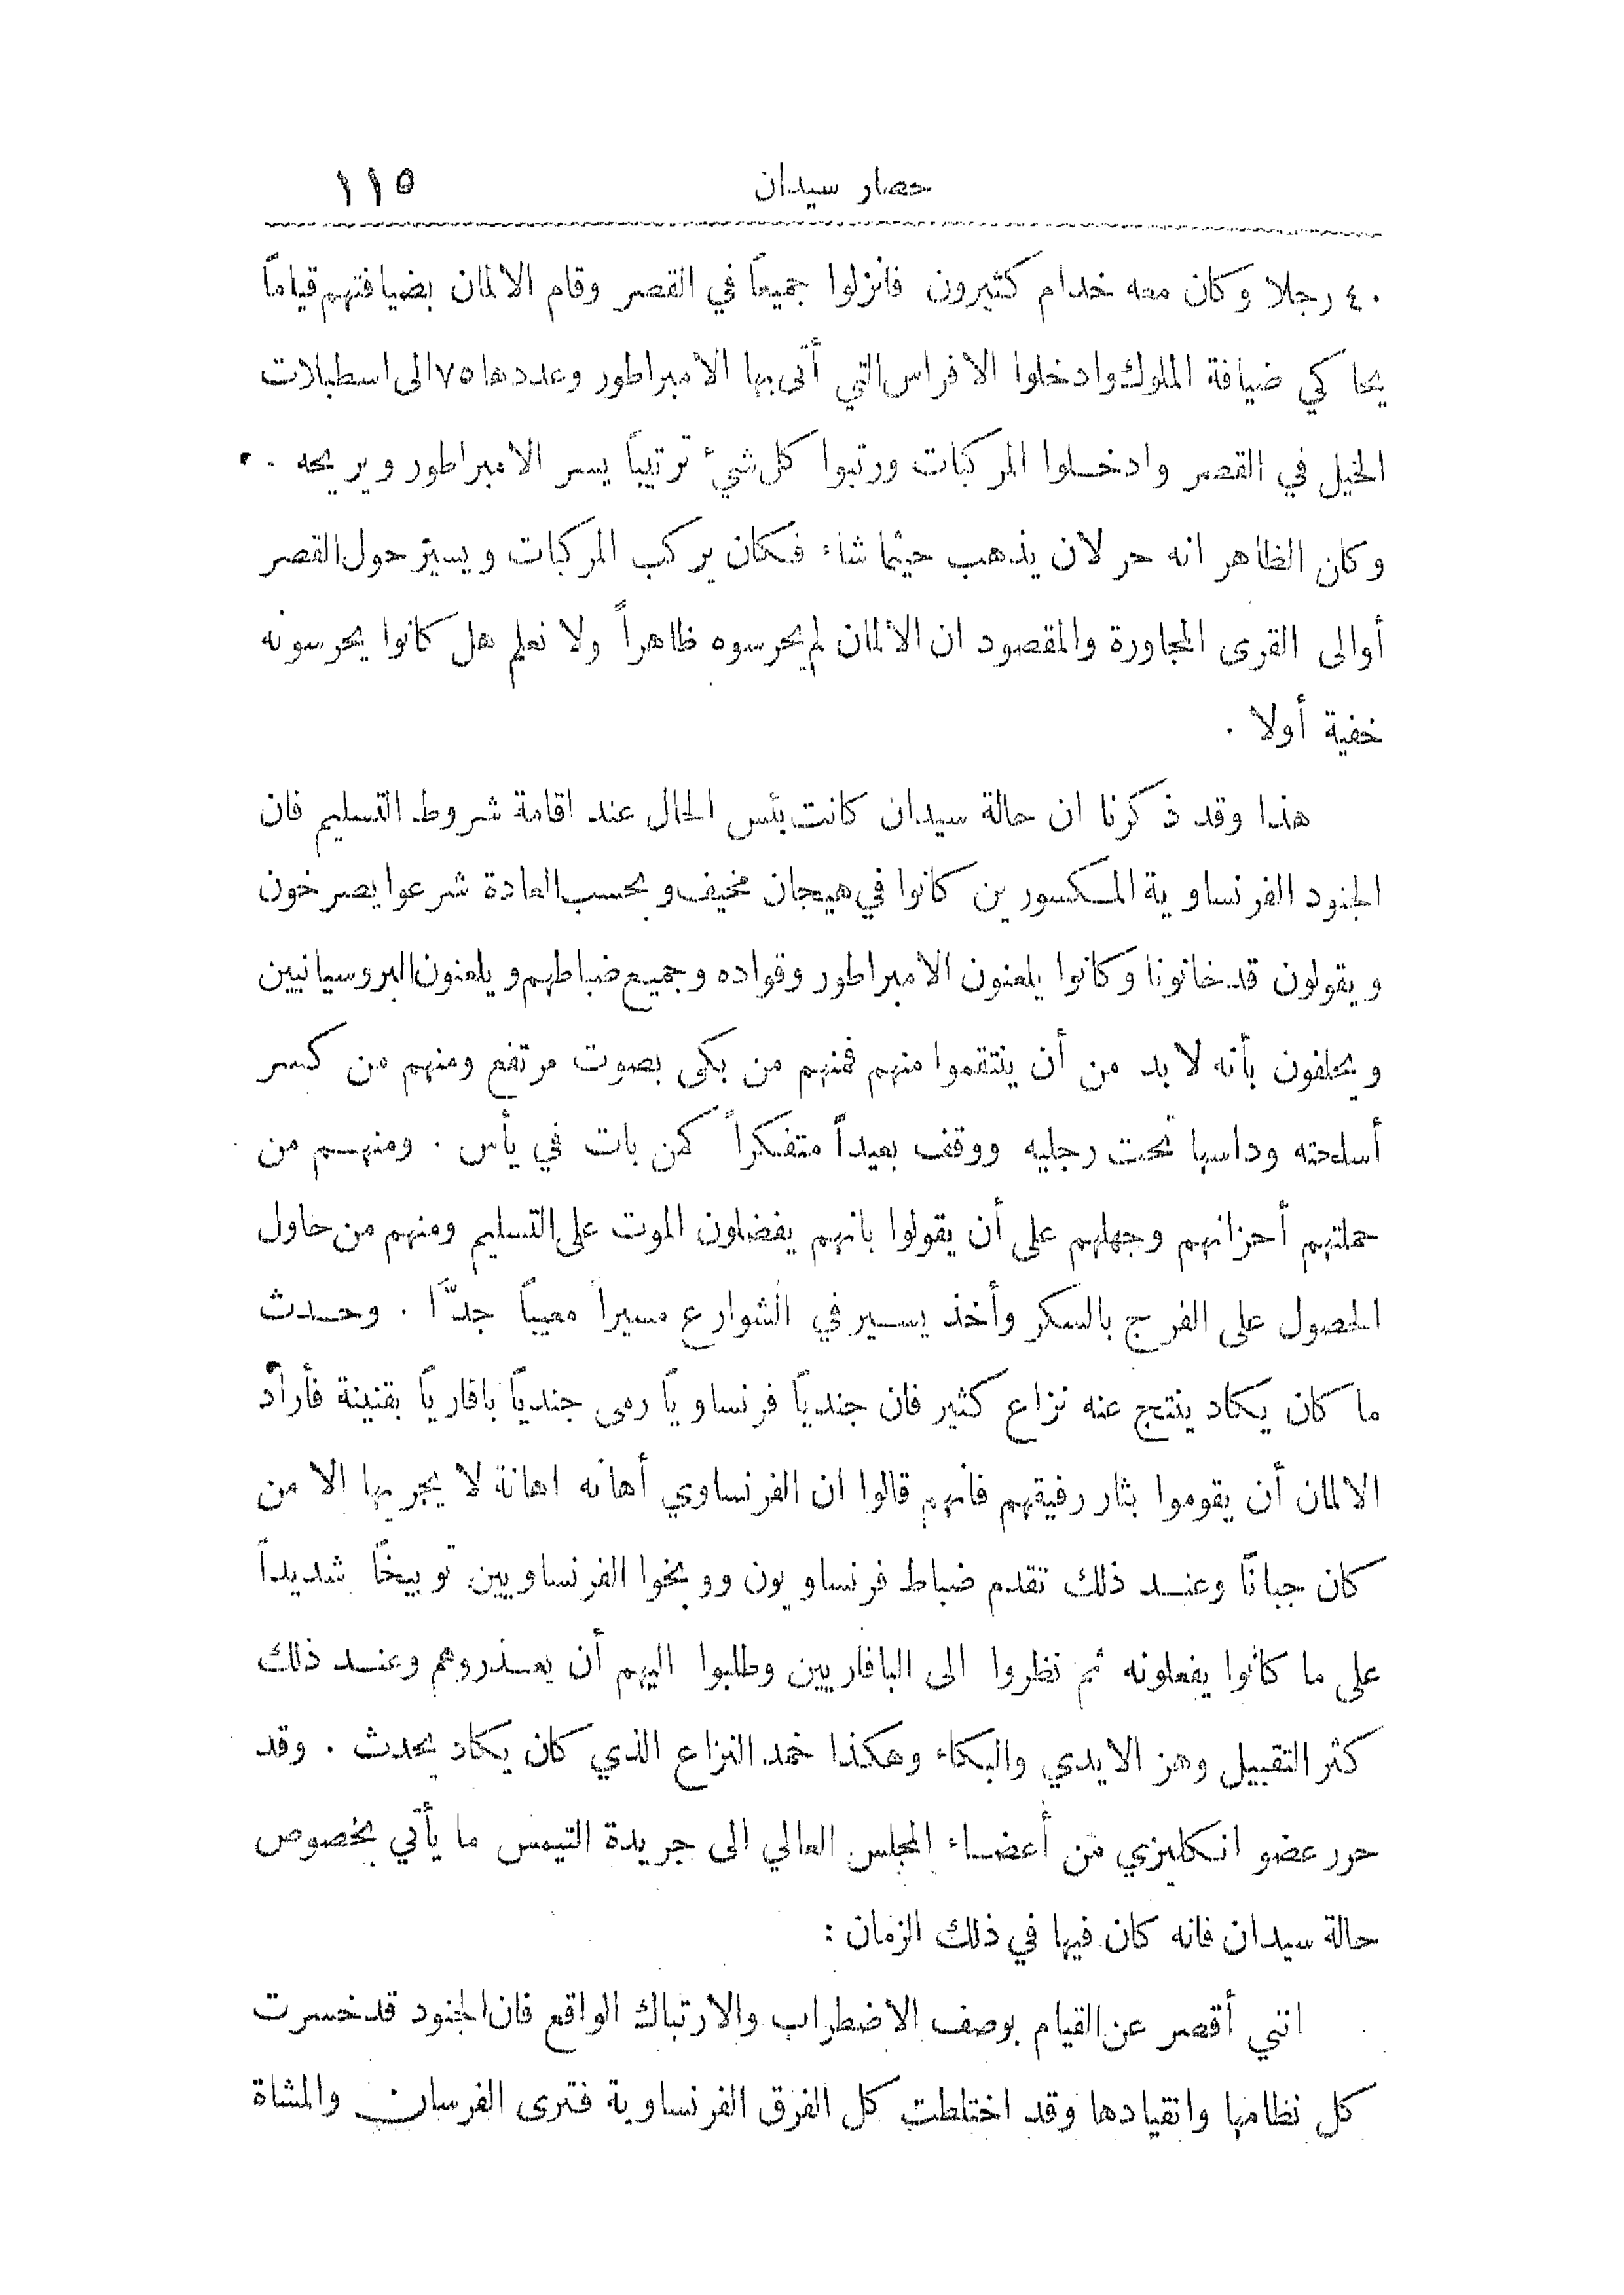 حصار سيدان ١١٥
٤٠ رجلا وكان معه خدام كثيرون فانزلوا جميعاً في القصر وقام الالمان بضيافتهم قياماً
يحاكي ضيافة الملوك وادخلوا الافراس التي أتى بها الامبراطور وعددها ٧٥ الى اسطبلات
الخيل في القصر وادخلوا المركبات ورتبوا كل شيء ترتيباً يسر الامبراطور ويريحه .
وكان الظاهر انه حر لان يذهب حيثما شاء فكان يركب المركبات ويسير حول القصر
أوالى القرى المجاورة والمقصود ان الالمان لم يحرسوه ظاهراً ولا نعلم هل كانوا يحرسونه
خفية أولا .
هذا وقد ذكرنا ان حالة سيدان كانت بئس الحال عند اقامة شروط التسليم فان
الجنود الفرنساوية المكسورين كانوا في هيجان مخيف وبحسب العادة شرعوا يصرخون
ويقولون قد خانونا وكانوا يلعنون الامبراطور وقواده وجميع ضباطهم ويلعنون البروسيانيين
ويحلفون بأنه لا بد من أن ينتقموا منهم فمنهم من بكى بصوت مرتفع ومنهم من كسر
أسلحته وداسها تحت رجليه ووقف بعيداً متفكراً كمن بات في يأس . ومنهم من
حملتهم أحزانهم وجهلهم على أن يقولوا بانهم يفضلون الموت على التسليم ومنهم من حاول
الحصول على الفرج بالسكر وأخذ يسير في الشوارع مسيراً معيباً جدّاً . وحدث
ما كان يكاد ينتج عنه نزاع كثير فان جندياً فرنساوياً رمى جندياً بافارياً بقنينة فأراد
الالمان أن يقوموا بثار رفيقهم فانهم قالوا ان الفرنساوي أهانه اهانة لا يجريها الا من
كان جباناً وعند ذلك تقدم ضباط فرنساويون ووبخوا الفرنساويين توبيخاً شديداً
على ما كانوا يفعلونه ثم نظروا الى البافاريين وطلبوا اليهم أن يعذروهم وعند ذلك
كثر التقبيل وهز الايدي والبكاء وهكذا خمد النزاع الذي كان يكاد يحدث . وقد
حرر عضو انكليزي من أعضاء المجلس العالي الى جريدة التيمس ما يأتي بخصوص
حالة سيدان فانه كان فيها في ذلك الزمان :
انني أقصر عن القيام بوصف الاضطراب والارتباك الواقع فان الجنود قد خسرت
كل نظامها وانقيادها وقد اختلطت كل الفرق الفرنساوية فترى الفرسان والمشاة